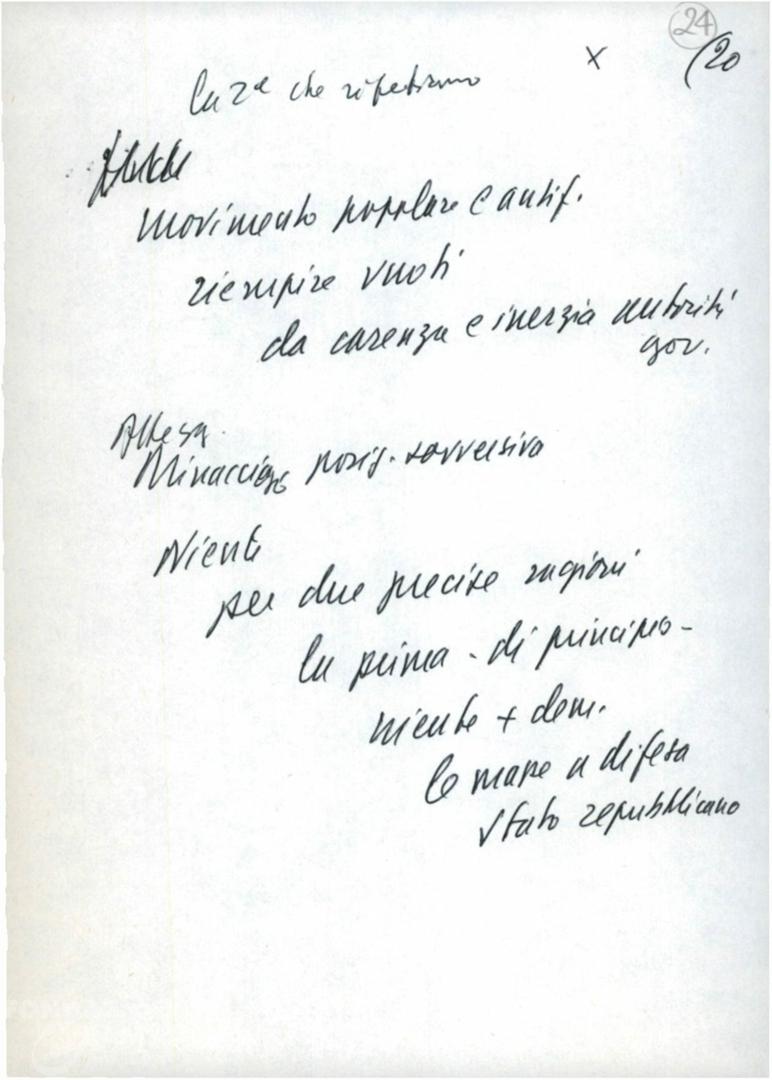 24
x (20
la 2ª che ripetiamo
movimento popolare e antif.
riempire vuoti
da carenza e inerzia autorità
gov.
Attesa.
posiz. sovversiva
Niente
per due precise ragioni
la prima - di principio -
niente + dem.
le masse a difesa
Stato repubblicano